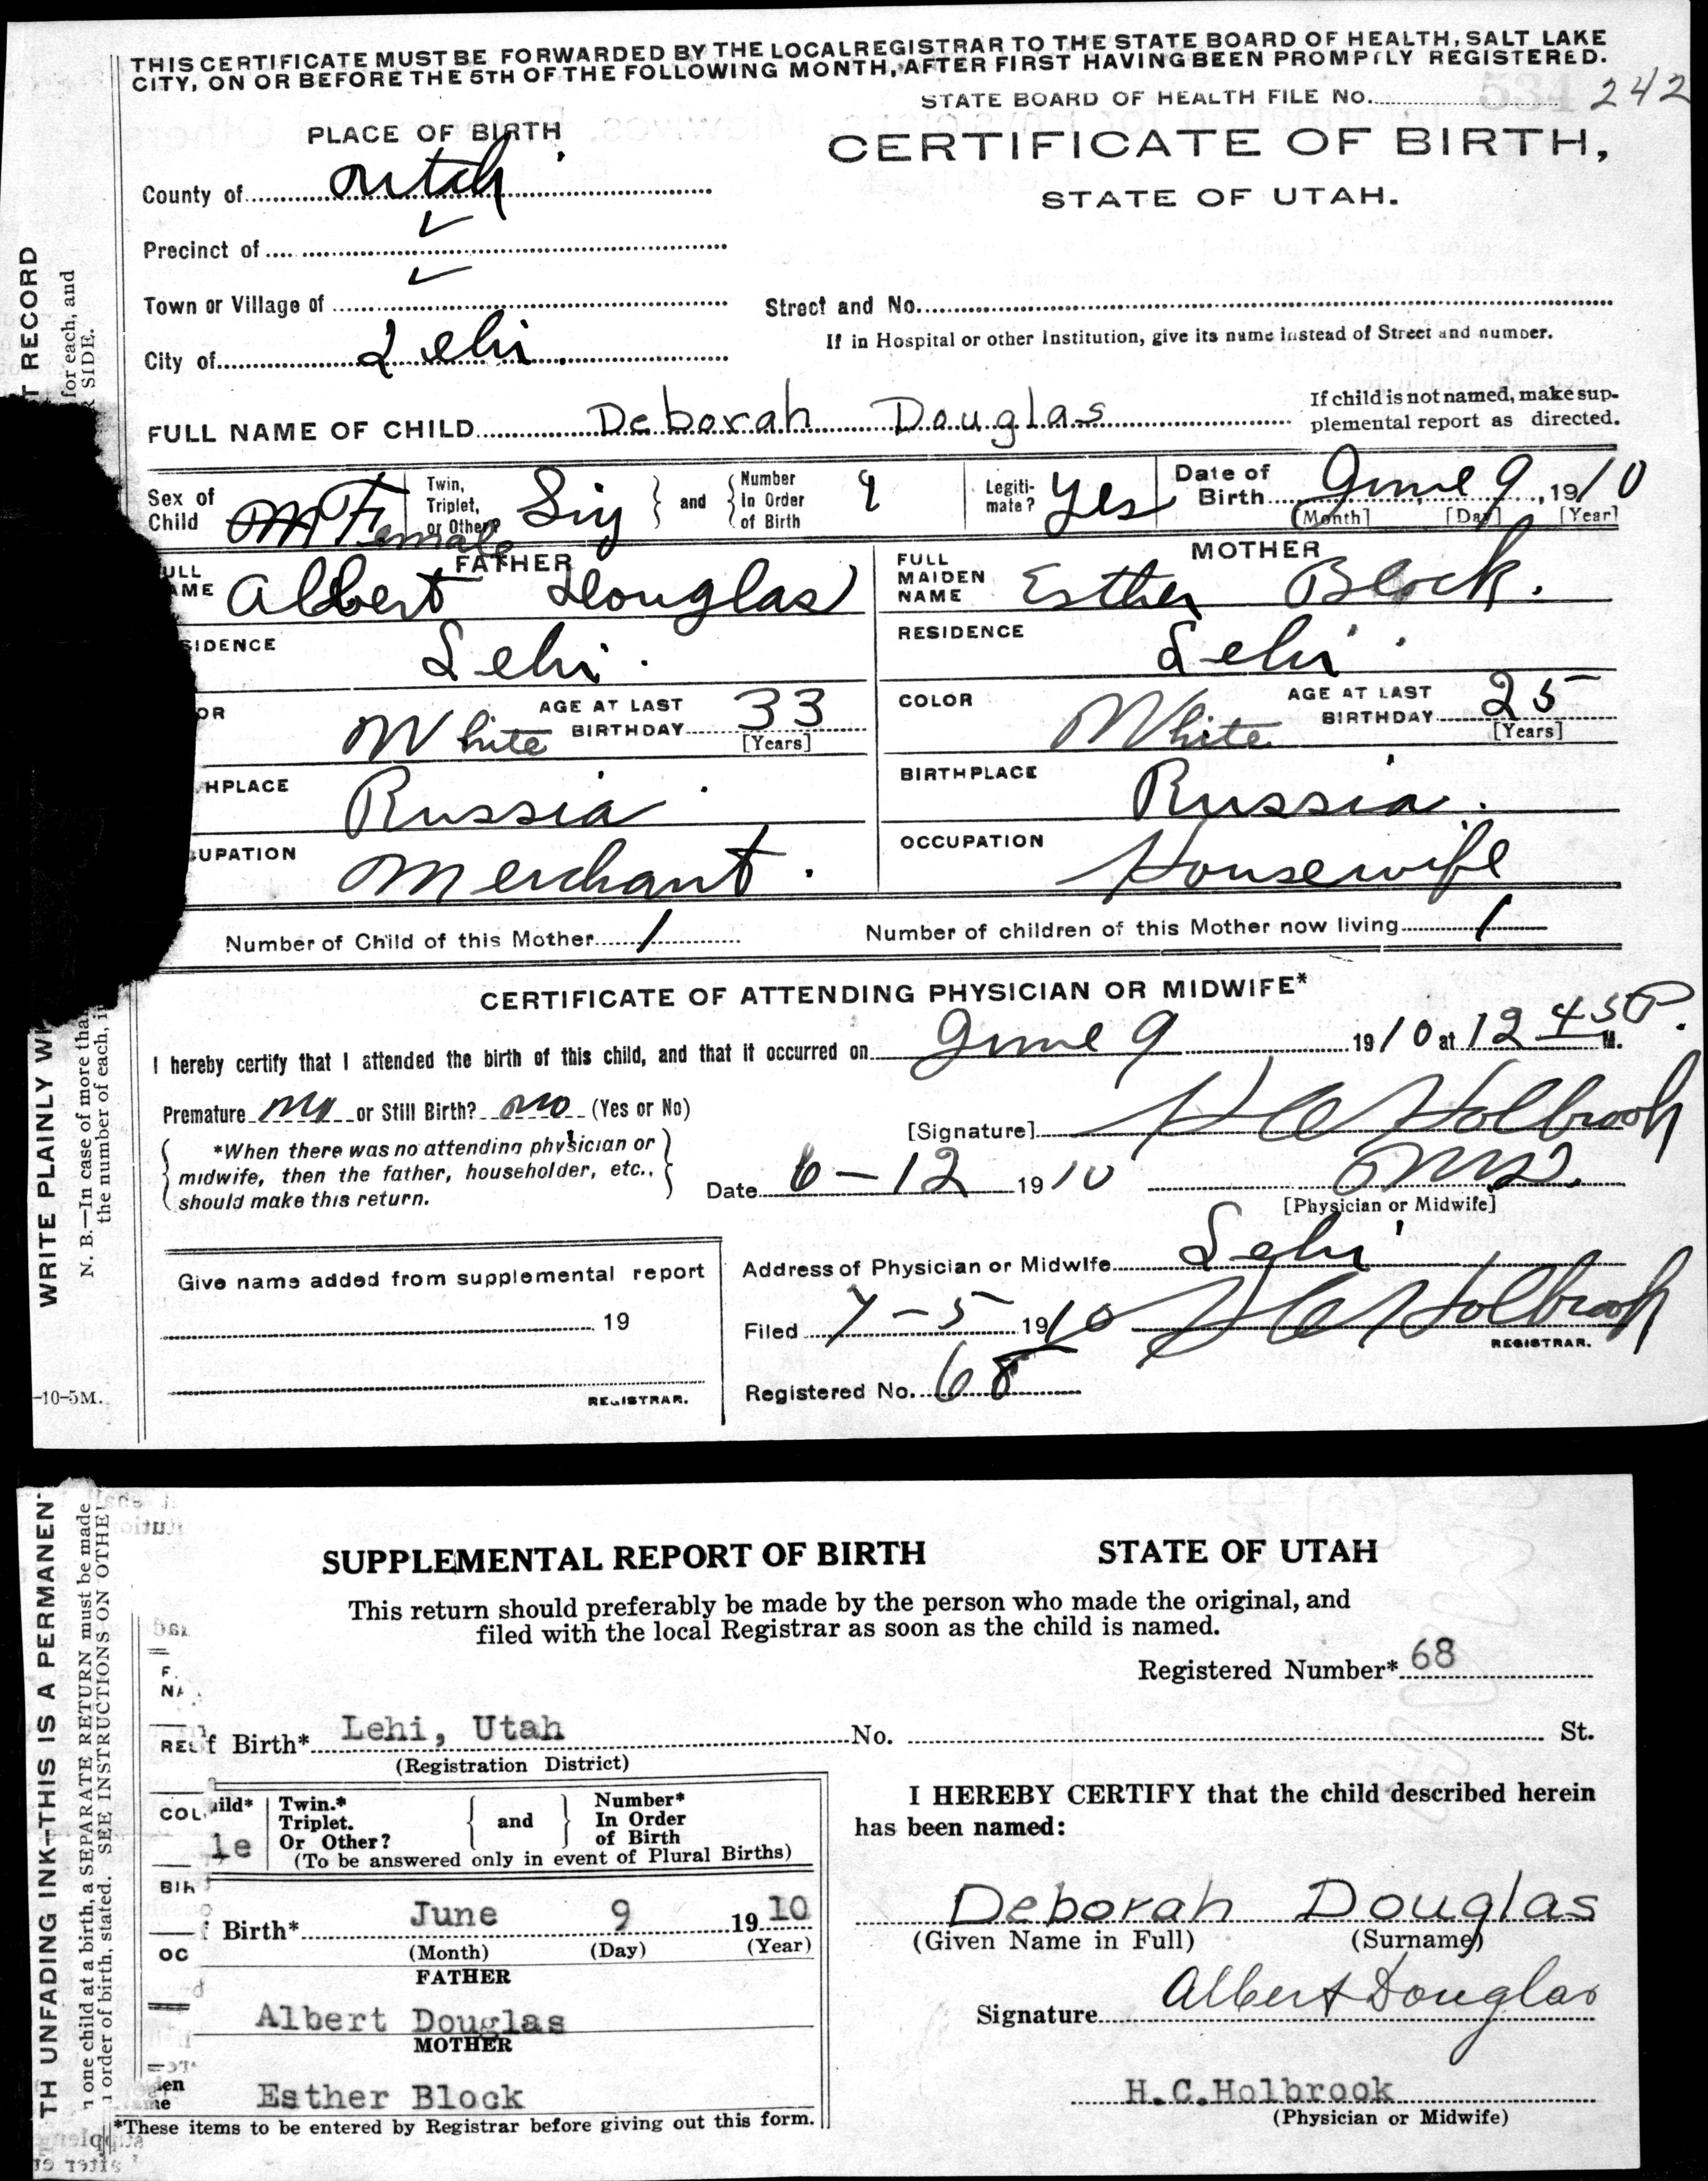 THIS CERTIFICATE MUST BE FORWARDED BY THE LOCAL REGISTRAR TO THE STATE BOARD OF HEALTH, SALT LAKE
CITY, ON OR BEFORE THE 5TH OF THE FOLLOWING MONTH, AFTER FIRST HAVING BEEN PROMPTLY REGISTERED.
STATE BOARD OF HEALTH FILE NO. 534 242
PLACE OF BIRTH
CERTIFICATE OF BIRTH,
County of Utah
STATE OF UTAH.
Precinct of
Town or Village of
Street and No.
City of Lehi.
If in Hospital or other Institution, give its name instead of Street and number.
FULL NAME OF CHILD Deborah Douglas
If child is not named, make sup-
plemental report as directed.
Sex of Child M Female
Twin, Triplet, or Other? Sig
and
Number In Order of Birth 9
Legiti-mate? Yes
Date of Birth June 9, 1910
[Month] [Day] [Year]
FATHER
MOTHER
ULL AME Albert Douglas
FULL MAIDEN NAME Esther Block.
SIDENCE Lehi.
RESIDENCE Lehi.
OR White AGE AT LAST BIRTHDAY 33 [Years]
COLOR White AGE AT LAST BIRTHDAY 25 [Years]
HPLACE Russia.
BIRTHPLACE Russia.
UPATION Merchant.
OCCUPATION Housewife
Number of Child of this Mother 1
Number of children of this Mother now living 1
CERTIFICATE OF ATTENDING PHYSICIAN OR MIDWIFE*
I hereby certify that I attended the birth of this child, and that it occurred on June 9 1910 at 12 45 P. M.
Premature No or Still Birth? No (Yes or No)
[Signature] H C Holbrook
*When there was no attending physician or
midwife, then the father, householder, etc.,
should make this return.
Date 6-12 1910 M.D.
[Physician or Midwife]
Address of Physician or Midwife Lehi
Give name added from supplemental report
19
REGISTRAR.
Filed 7-5 1910 H C Holbrook
REGISTRAR.
Registered No. 68
-10-5M.
T RECORD
for each, and
SIDE.
WRITE PLAINLY WI
N. B.—In case of more tha
the number of each, i
SUPPLEMENTAL REPORT OF BIRTH STATE OF UTAH
This return should preferably be made by the person who made the original, and
filed with the local Registrar as soon as the child is named.
Registered Number* 68
f Birth* Lehi, Utah No. St.
(Registration District)
ild*
le
Twin.* Triplet. Or Other?
and
Number* In Order of Birth
(To be answered only in event of Plural Births)
Birth* June 9 1910
(Month) (Day) (Year)
FATHER
Albert Douglas
MOTHER
Esther Block
*These items to be entered by Registrar before giving out this form.
I HEREBY CERTIFY that the child described herein
has been named:
Deborah Douglas
(Given Name in Full) (Surname)
Signature Albert Douglas
H.C.Holbrook
(Physician or Midwife)
TH UNFADING INK—THIS IS A PERMANEN
one child at a birth, a SEPARATE RETURN must be made
order of birth, stated. SEE INSTRUCTIONS ON OTHE
F.
NA
REL
COL
BIH
OC